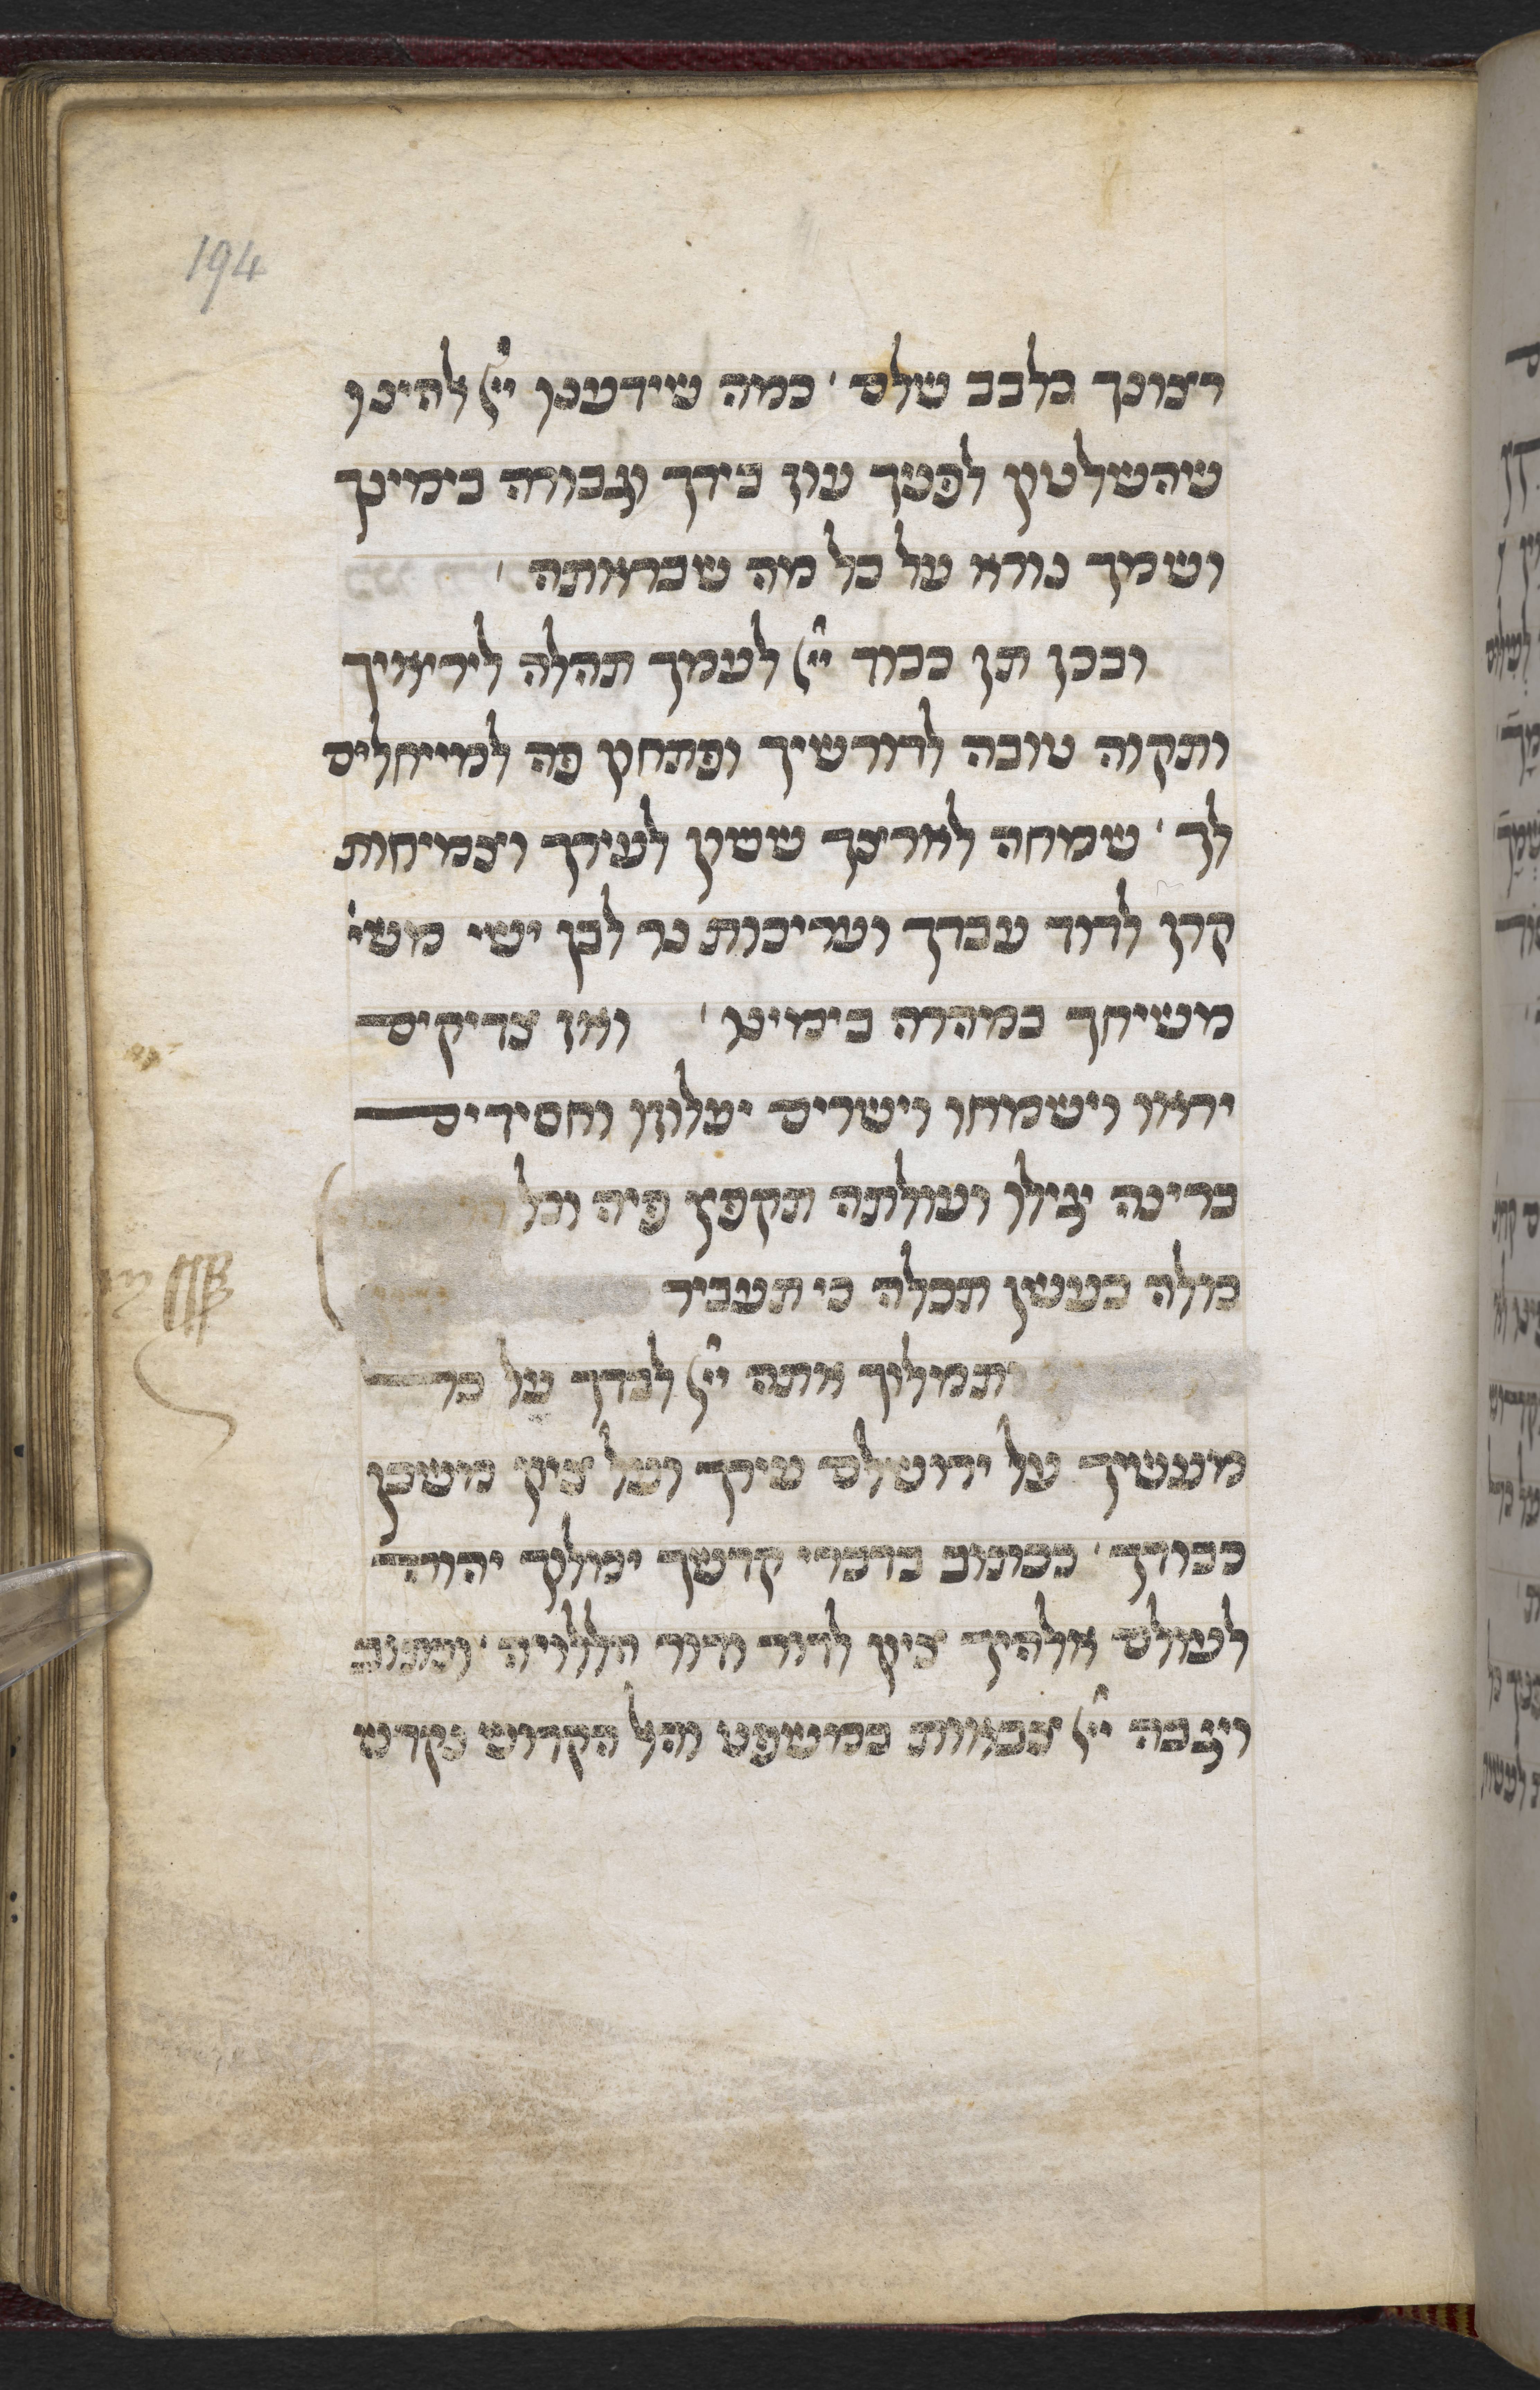 194
רצונך בלבב שלם כמה שידענו ייי אלהינו
שהשלטון לפניך עוז בידך וגבורה בימינך
ושמך נורא על כל מה שבראתה
ובכן תן כבוד ייי לעמך תהלה ליריאיך
ותקוה טובה לדורשיך ופתחון פה למייחלים
לך שמחה לארצך ששון לעירך וצמיחות
קרן לדוד עבדך ועריכות נר לבן ישי משי
משיחך במהרה בימינו ואז צדיקים
יראו וישמחו וישרים יעלוזו וחסידים
ברינה יגילו ועולתה תקפץ פיה וכל
כולה כעשן תכלה כי תעביר
תמלוך אתה ייי לבדך על כל
מעשיך על ירושלם עירך ועל ציון משכן
כבודך ככתוב בדברי קדשך ימלוך יהוה
לעולם אלהיך ציון לדור ודור הללויה וכתוב
ויגבה ייי צבאות במשפט והאל הקדוש נקדש